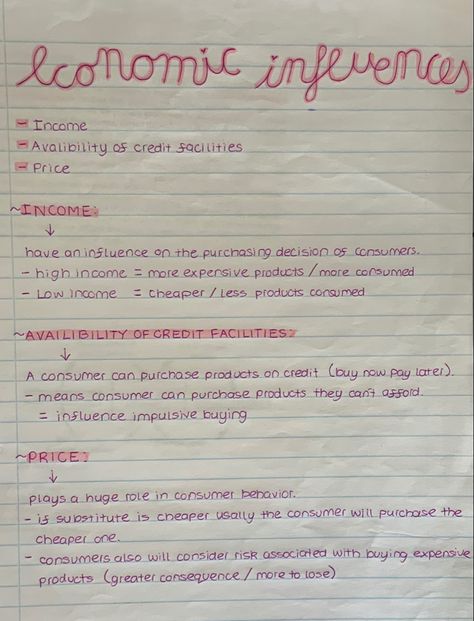 economic influences
- Income
- Avalibility of credit facilities
- Price
~INCOME:
↓
have an influence on the purchasing decision of consumers.
- high income = more expensive products / more consumed
- Low income = cheaper / less products consumed
~AVAILIBILITY OF CREDIT FACILITIES:
↓
A consumer can purchase products on credit (buy now pay later).
- means consumer can purchase products they can't afford.
= influence impulsive buying
~PRICE:
↓
plays a huge role in consumer behavior.
- if substitute is cheaper usally the consumer will purchase the
cheaper one.
- consumers also will consider risk associated with buying expensive
products (greater consequence / more to lose)